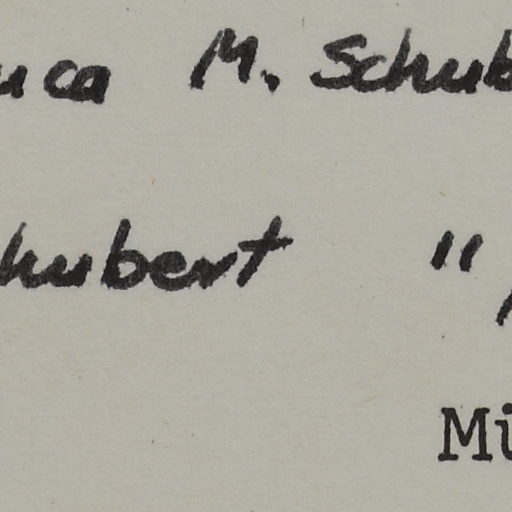 uca M. Schub
hubert "
Mü